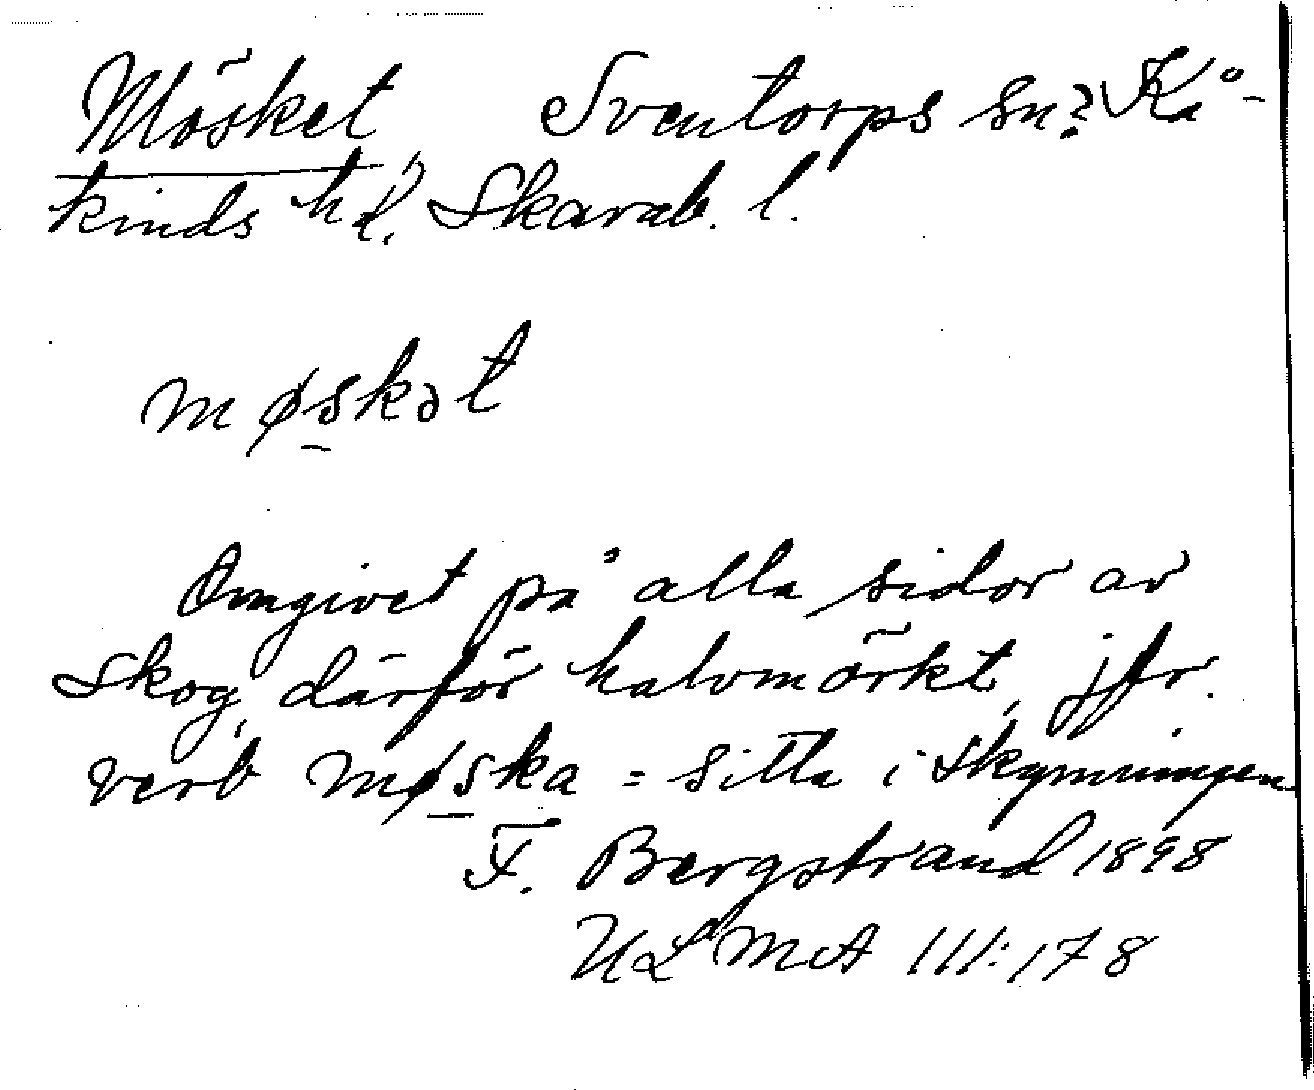 Mösket, Sventorps sn? Kå-
kinds hd, Skarab. l.
møskət
Omgivet på alla sidor av
skog, därför halvmörkt, jfr.
verb møska = sitta i skymningen
F. Bergstrand 1898
ULMA 111:178